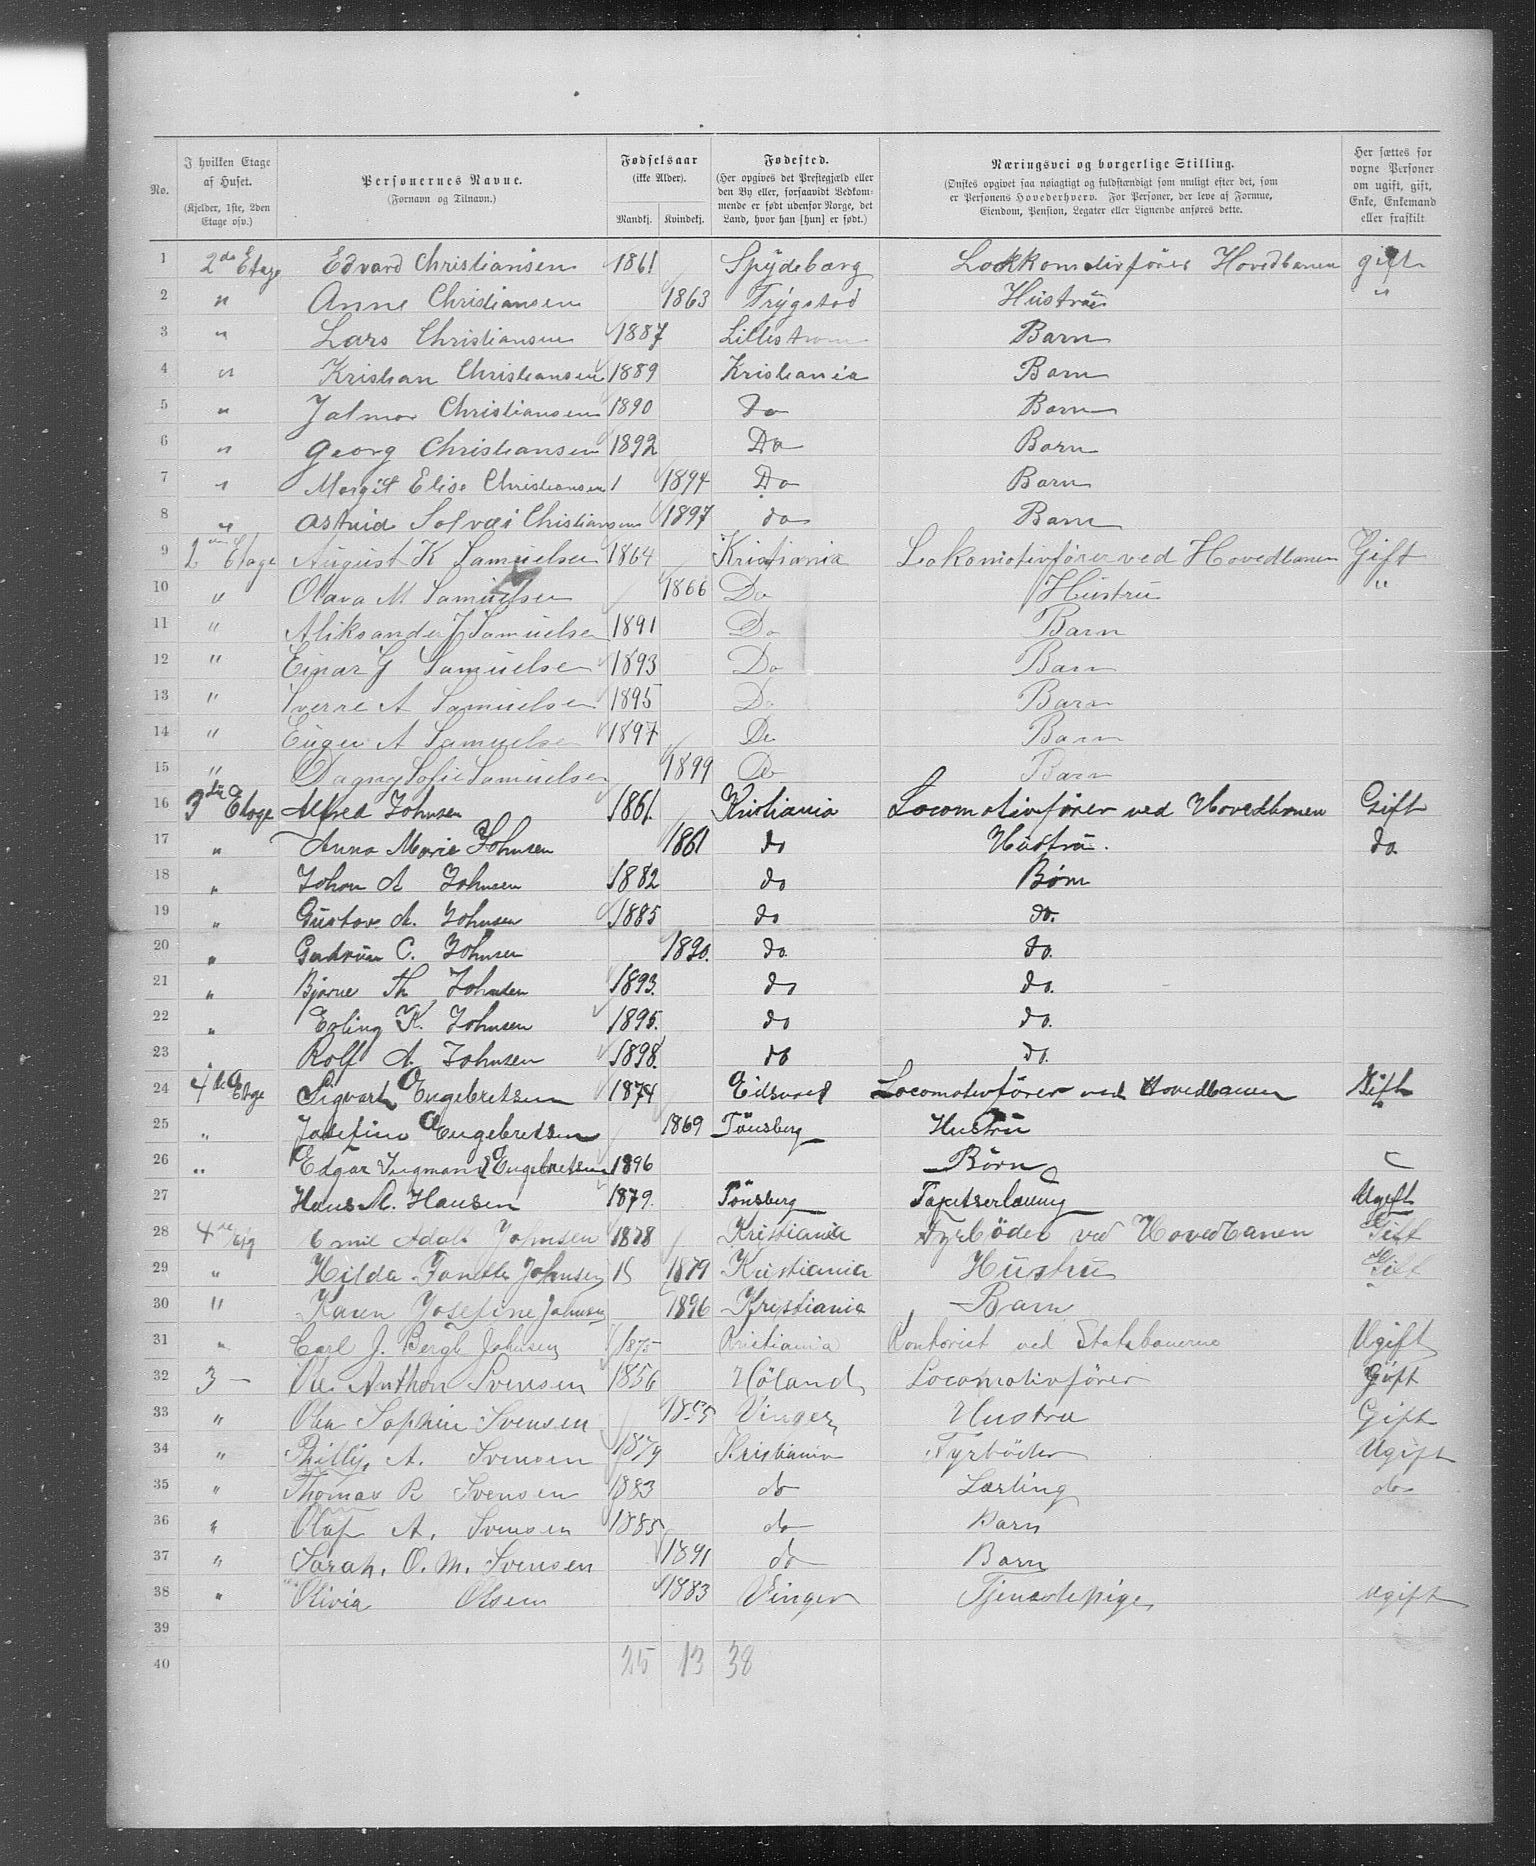 No.
I hvilken Etage af Huset. (Kjelder, 1ste, 2den Etage osv.)
Personernes Navne. (Fornavn og Tilnavn.)
Fødselsaar (ikke Alder). Mandkj. Kvindekj.
Fødested. (Her opgives det Prestegjæld eller den By eller, forsaavidt Vedkommende er født udenfor Norge, det Land, hvor han [hun] er født.)
Næringsvei og borgerlige Stilling. (Ønskes opgivet saa nøiagtigt og fuldstændigt som muligt efter det, som er Personens Hovederhverv. For Personer, der leve af Formue, Eiendom, Pension, Legater eller Lignende anføres dette.
Her sættes for voxne Personer om ugift, gift, Enke, Enkemand eller fraskilt
1 2de Etage Edvard Christiansen 1861 Spydeberg Lokkomotivfører Hovedbanen gift
2 " Anne Christiansen 1863 Trygstad Hustru "
3 " Lars Christiansen 1887 Lillestrøm Barn
4 " Kristian Christiansen 1889 Kristiania Barn
5 " Jalmar Christiansen 1890 do Barn
6 " Georg Christiansen 1892 Do Barn
7 " Margit Elise Christiansen 1 1894 Do Barn
8 " Astrid Solvei Christiansen 1897 do Barn
9 2 Etage August K Samuelsen 1864 Kristiania Lokomotivfører ved Hovedbanen Gift
10 " Olava M Samuelsen 1866 Do Hustru "
11 " Aliksander J Samuelsen 1891 Do Barn
12 " Einar G Samuelsen 1893 Do Barn
13 " Sverre A Samuelsen 1895 Do Barn
14 " Eugen A Samuelsen 1897 Do Barn
15 " Dagny Sofie Samuelsen 1899 Do Barn
16 3die Etage Alfred Johnsen 1861. Kristiania Locomotivfører ved Hovedbanen Gift
17 " Anna Marie Johnsen 1861 do Hustru. do.
18 " Johan A Johnsen 1882 do Børn
19 " Gustav A. Johnsen 1885 do do.
20 " Gudrun C. Johnsen 1890. do. do.
21 " Bjarne Th Johnsen 1893. do do.
22 " Erling K. Johnsen 1895. do do.
23 " Rolf A. Johnsen 1898. do do.
24 4de Etage Sigvart Engebretsen 1874 Eidsvold Locomotivfører ved Hovedbanen Gift
25 " Josefine Engebretsen 1869 Tönsberg Hustru
26 " Edgar Ingmand Engebretsen 1896 Börn
27 Hans M. Hansen 1879. Tönsberg Ugift
28 4de Etg Emil Adolf Johnsen 1878 Kristiania Fyrböder ved Hovedbanen Gift
29 " Hilda Johnsen 1879 Kristiania Hustru Gift
30 " Karen Josefine Johnsen 1896 Kristiania Barn
31 " Carl J. Bergh Johnsen 1875 Kristiania Kontorist ved Statsbanerne Ugift
32 3 — Ole Anthon Svensen 1856 Höland Locomotivfører Gift
33 " Sophie Svensen 1855 Vinger Hustru Gift
34 " A. Svensen 1879 Kristiania Fyrböder Ugift
35 " Thomas R Svensen 1883 do Lærling do
36 " Olaf A. Svensen 1885 do Barn
37 " Sarah. O. M. Svensen 1891 do Barn
38 " Olivia Olsen 1883 Vinger Tjenestepige ugift
39
40 25 13 38